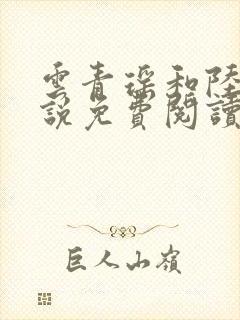 雲青瑤和陸
說免費閱讀
巨人山嶺